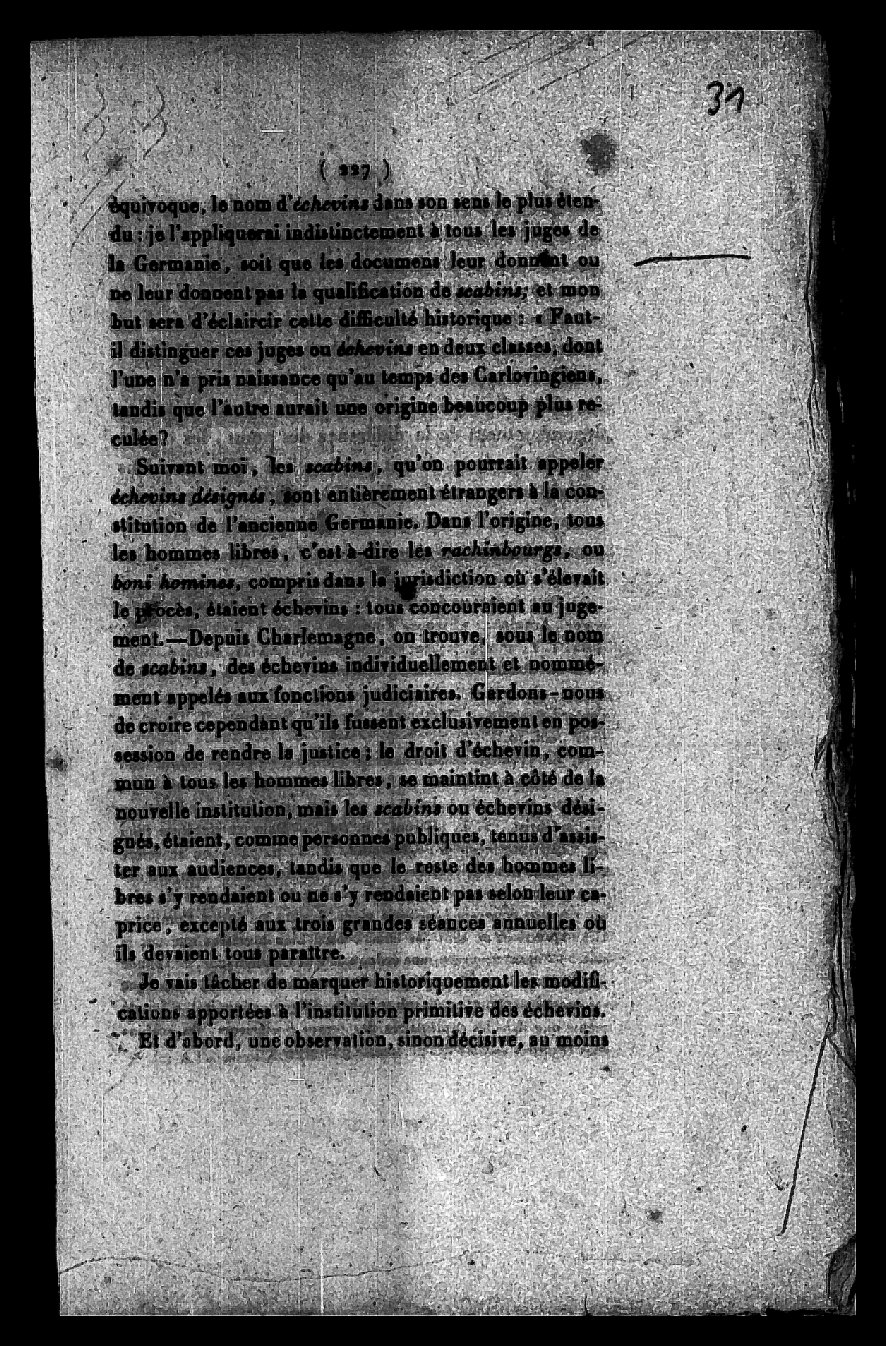 31
( 227 )
équivoque, le nom d'échevins dans son sens le plus éten-
du : je l'appliquerai indistinctement à tous les juges de
la Germanie, soit que les documens leur donnent ou
ne leur donnent pas la qualification de scabins; et mon
but sera d'éclaircir cette difficulté historique : « Faut-
il distinguer ces juges ou échevins en deux classes, dont
l'une n'a pris naissance qu'au temps des Carlovingiens,
tandis que l'autre aurait une origine beaucoup plus re-
culée?
Suivant moi, les scabins, qu'on pourrait appeler
échevins désignés, sont entièrement étrangers à la con-
stitution de l'ancienne Germanie. Dans l'origine, tous
les hommes libres, c'est-à-dire les rachinbourgs, ou
boni homines, compris dans la jurisdiction où s'élevait
le procès, étaient échevins : tous concouraient au juge-
ment.—Depuis Charlemagne, on trouve, sous le nom
de scabins, des échevins individuellement et nommé-
ment appelés aux fonctions judiciaires. Gardons-nous
de croire cependant qu'ils fussent exclusivement en pos-
session de rendre la justice; le droit d'échevin, com-
mun à tous les hommes libres, se maintint à côté de la
nouvelle institution, mais les scabins ou échevins dési-
gnés, étaient, comme personnes publiques, tenus d'assis-
ter aux audiences, tandis que le reste des hommes li-
bres s'y rendaient ou ne s'y rendaient pas selon leur ca-
price, excepté aux trois grandes séances annuelles où
ils devaient tous paraître.
Je vais tâcher de marquer historiquement les modifi-
cations apportées à l'institution primitive des échevins.
Et d'abord, une observation, sinon décisive, au moins